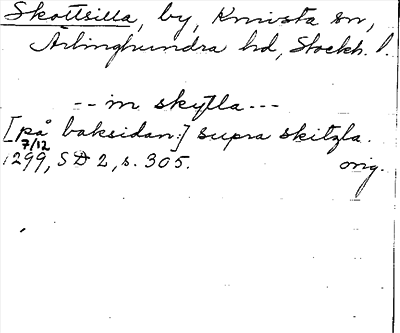 Skottsilla, by, Knivsta sn,
Ärlinghundra hd, Stockh. l.
-- in skytla ---
[på baksidan:] supra skitzla.
7/12
1299, SD 2, s. 305. orig.